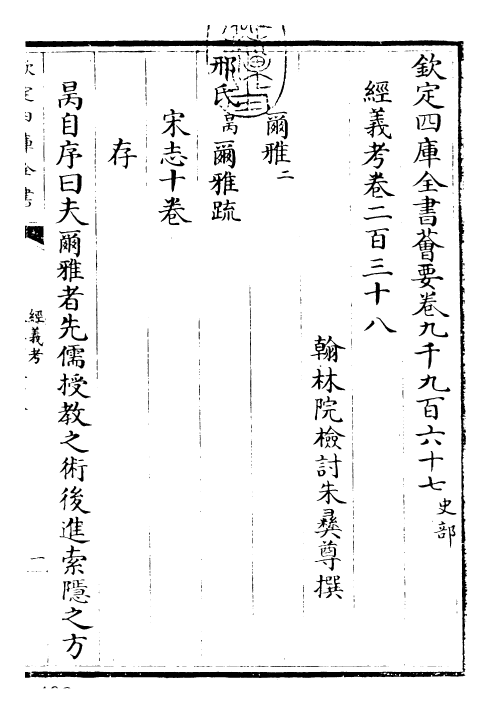 欽定四庫全書薈要卷九千九百六十七史部
經義考卷二百三十八
翰林院檢討朱彝尊撰
爾雅二
邢氏昺爾雅疏
宋志十卷
存
昺自序曰夫爾雅者先儒授教之術後進索隱之方
欽定四庫全書
經義考
一